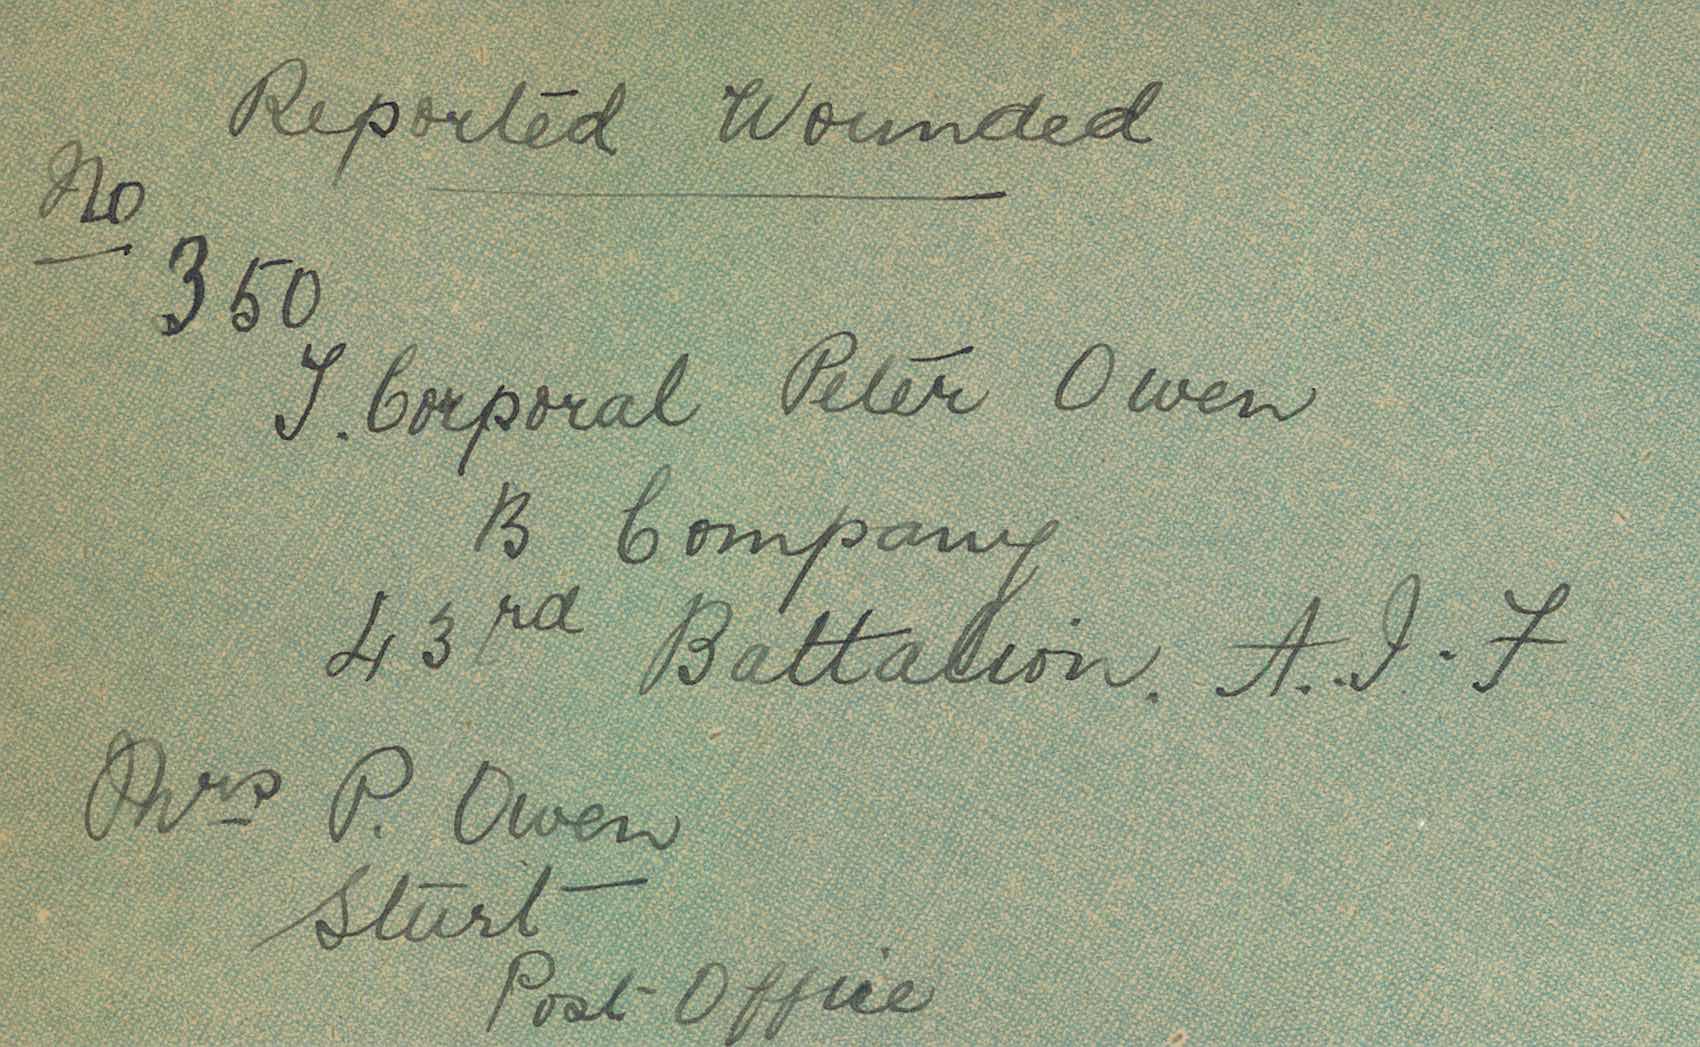 Reported Wounded
No
350
T. Corporal Peter Owen
B Company
43rd Battalion. A.I.F
Mrs P. Owen
Sturt
Post Office